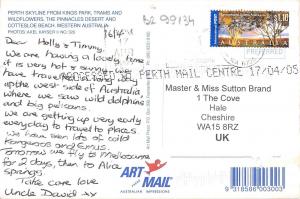 PERTH SKYLINE FROM KINGS PARK, TRAMS AND
WILDFLOWERS, THE PINNACLES DESERT AND
COTTESLOE BEACH, WESTERN AUSTRALIA
PHOTOS: AXEL KAYSER
Dear Holly & Timmy,
We are having a lovely time
it is very hot & sunny. We
have travelled a long way up
the west side of Australia
where we saw wild dolphins
and big pelicans.
We are getting up very early
everyday to travel to places
We have seen lots of wild
Kangaroos and Emus.
Tomorrow we fly to Melbourne
for 2 days, then to Alice
Springs.
Take care love
Uncle David xx
16/4/
BZ 99134
$1.10
AUSTRALIA
PERTH MAIL CENTRE 17/04/05
Master & Miss Sutton Brand
1 The Cove
Hale
Cheshire
WA15 8RZ
UK
ART
MAIL
AUSTRALIAN IMPRESSIONS
9 318566 003003